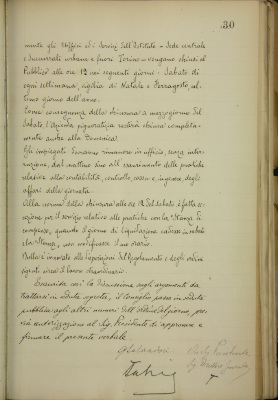 30
mente gli Uffici ed i Servizi dell'Istituto - Sede centrale
e Succursali urbane e fuori Torino - vengano chiusi al
Pubblico alle ore 12 nei seguenti giorni: Sabato di
ogni settimana, vigilia di Natale e Ferragosto, ul-
timo giorno dell'anno.
Come conseguenza della chiusura a mezzogiorno del
Sabato, l'Azienda pignoratizia resterà chiusa completa-
mente anche alla Domenica.
Gli impiegati dovranno rimanere in ufficio, senza inter-
ruzione, dal mattino sino all'esaurimento delle pratiche
relative alla contabilità, controllo, cassa e in genere degli
affari della giornata.
Alla norma della chiusura alle ore 12 del Sabato è fatta ec-
cezione per il servizio relativo alle pratiche con la Stanza di
compenso, quando il giorno di liquidazione cadesse in sabato
e la Stanza non modificasse il suo orario.
Nulla è innovato alle disposizioni del Regolamento e degli ordini
vigenti circa il lavoro straordinario.
Esaurita così la discussione sugli argomenti da
trattarsi in seduta segreta, il Consiglio passa in seduta
pubblica agli altri numeri dell'Ordine del giorno, pre-
via autorizzazione al Sig. Presidente di approvare e
firmare il presente verbale.